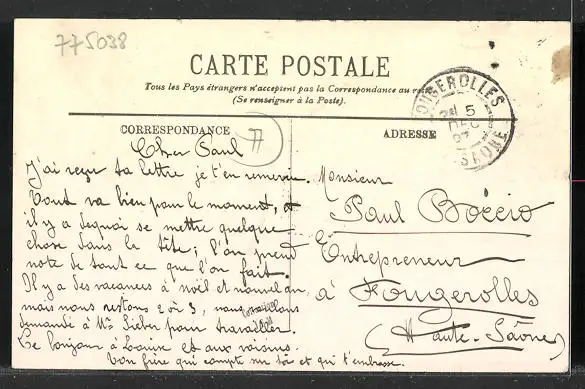 775038
CARTE POSTALE
Tous les Pays étrangers n'acceptent pas la Correspondance au
(Se renseigner à la Poste).
FOUGEROLLES
5
DEC
SAÔNE
CORRESPONDANCE
77
ADRESSE
Cher Paul
J'ai reçu ta lettre je t'en remercie.
Tout va bien pour le moment, et
il y a dequoi se mettre quelque
chose dans la tête; l'on prend
note de tout ce que l'on fait.
Il y a des vacances à noël et nouvel an,
mais nous restons 2 ou 3, nous
demandé à Mr pour travailler.
Le bonjour à Louise et aux voisins.
Ton frère qui compte sur toi et qui t'embrasse.
Monsieur
Paul Boccio
Entrepreneur
à Fougerolles
(Haute-Saône)